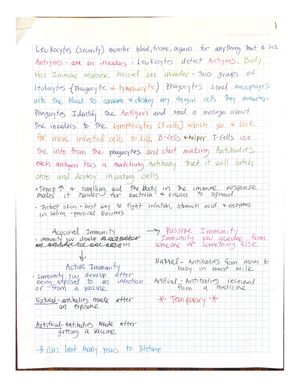 1
Leukocytes (security) monitor blood, tissue, organs for anything that is sus
Antigens - are an invaders - Leukocytes detect Antigens. Body
Has Immune response based on invader - Two groups of
leukocytes (Phagocyte & lymphocyte) Phagocytes send macrophages
into the blood to consume + destroy any foreign cells they encounter
Phagocytes Identify the Antigens and send a message about
the invaders to the Lymphocytes (T cells) which go + look
for more infected cells to kill. B cells + helper T cells use
the info from the phagocytes and start making Antibodies.
each antigen has a matching Antibody that it will latch
onto and destroy invading cells.
- Temp ↑ + swelling aid the body in the immune response
makes it harder for bacteria + viruses to spread
- Intact skin = best way to fight infection, stomach acid + enzymes
in saliva - physical barriers
Acquired Immunity
- immunity you develop
→ Passive Immunity
Immunity you acquire from
someone or something else
↓
Active Immunity
- Immunity you develop after
being exposed to an infection
or from a vaccine
Natural - Antibodies from mom to
baby in breast milk
Artificial - Antibodies received
from a medicine
Natural - antibodies made after
an exposure
* Temporary *
Artificial - antibodies made after
getting a vaccine
* can last many years to lifetime